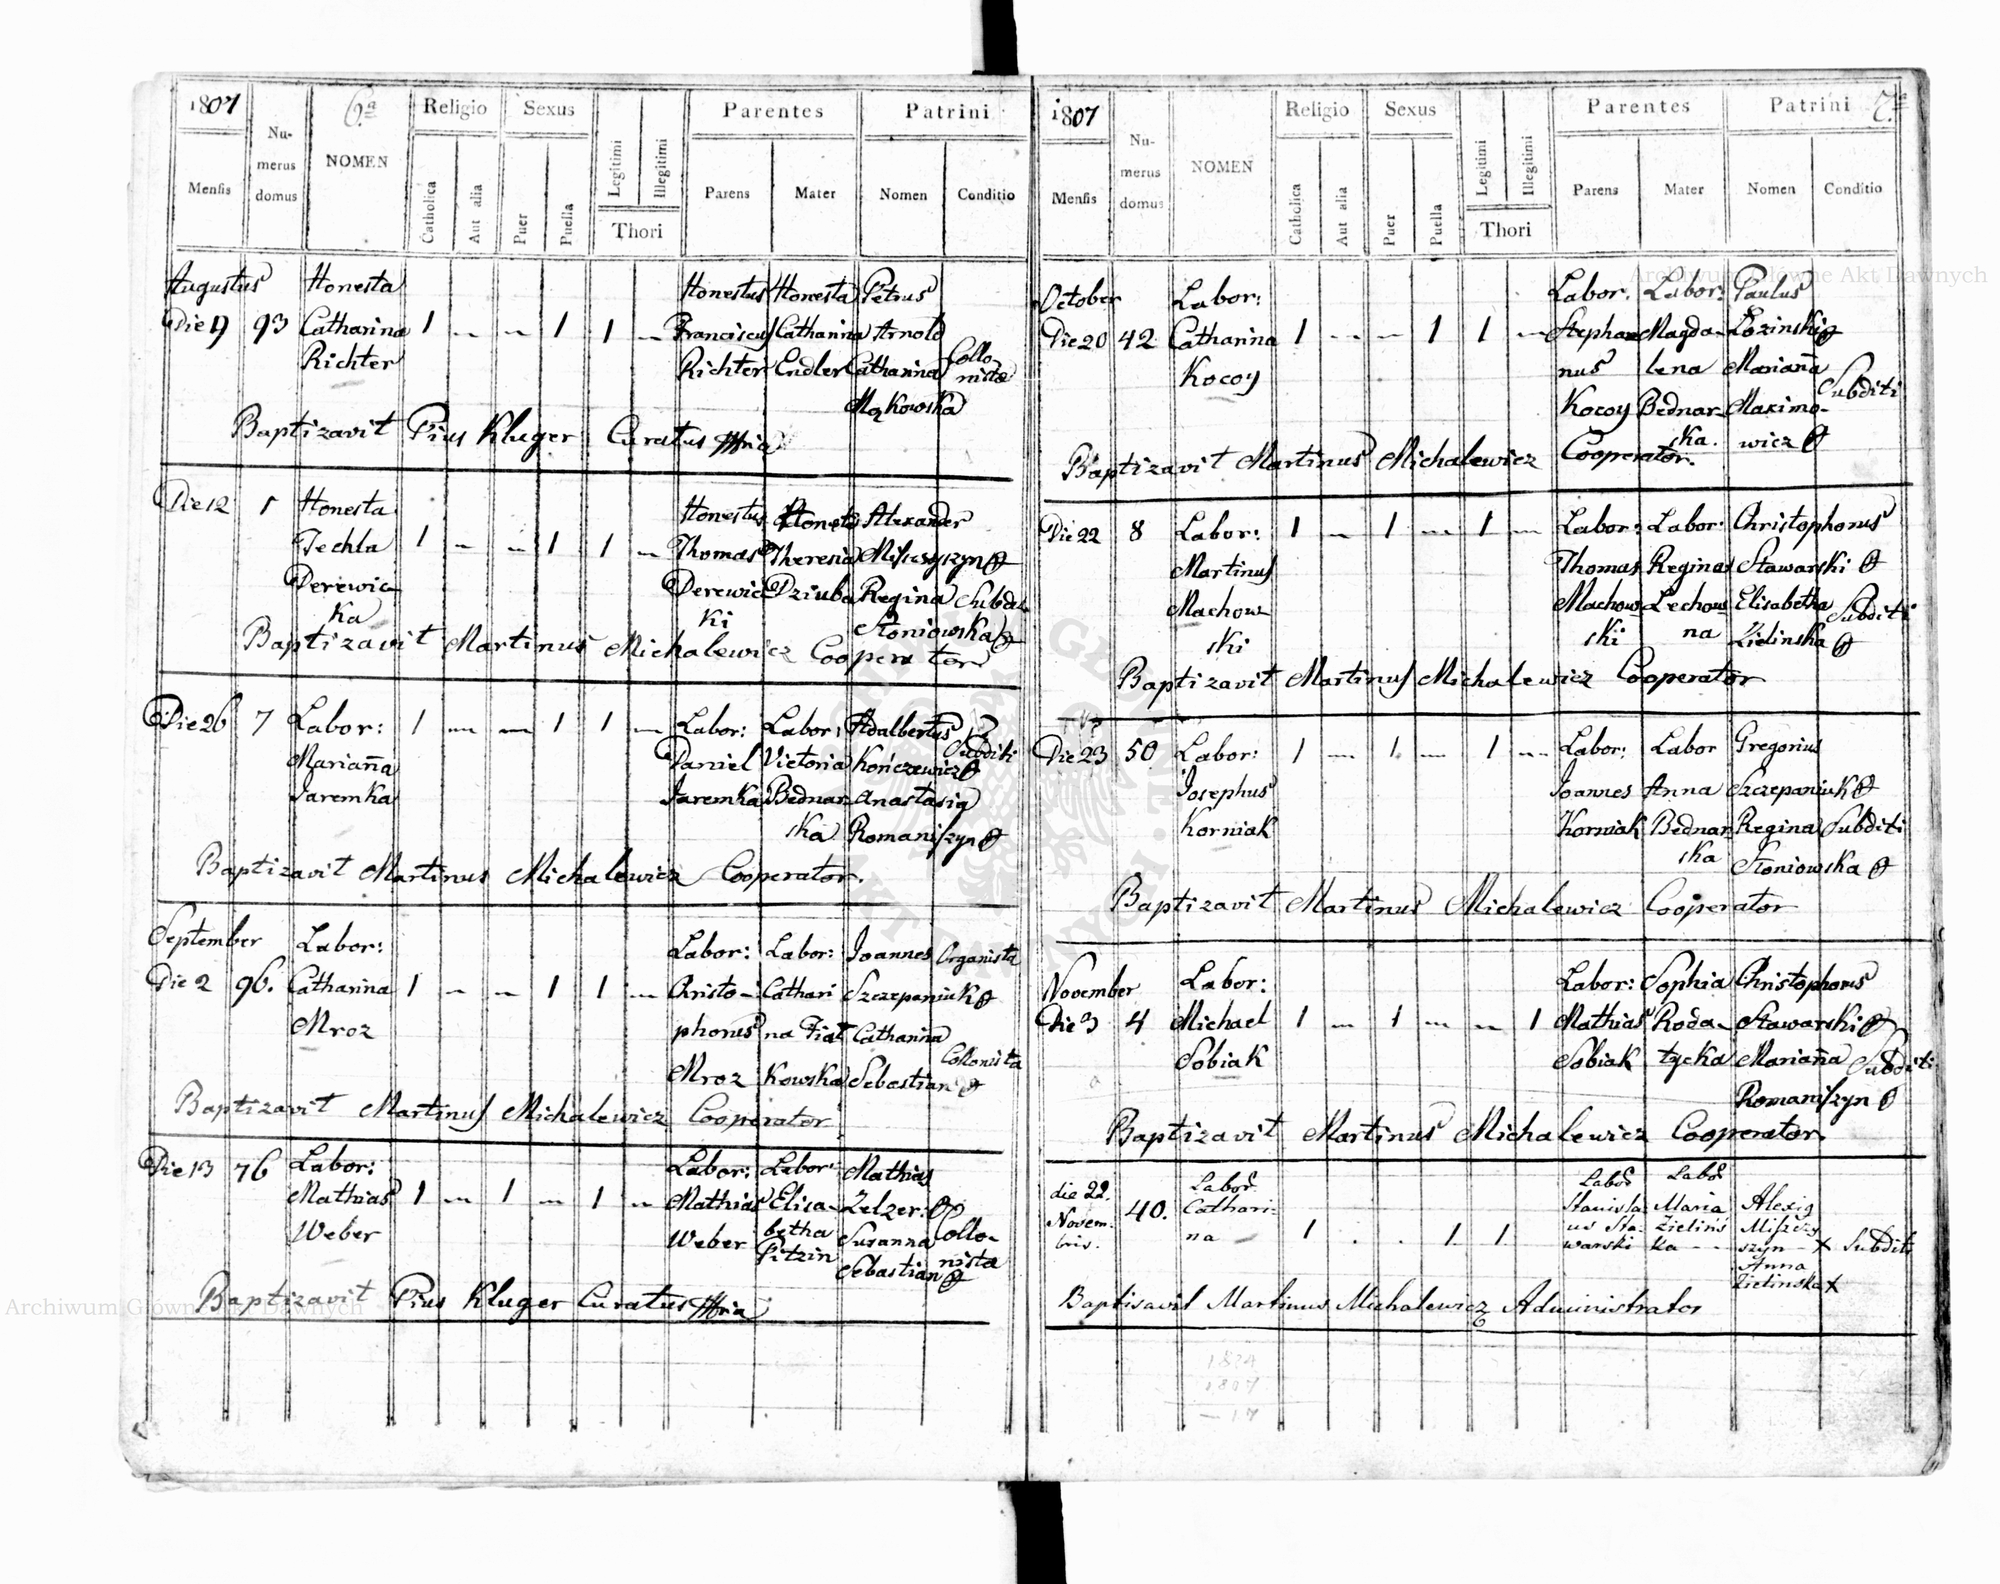 1807
6.a
Numerus domus
NOMEN
Religio
Sexus
Legitimi
Illegitimi
Parentes
Patrini
Mensis
Catholica
Aut alia
Puer
Puella
Thori
Parens
Mater
Nomen
Conditio
Augustus Honesta Honestus Honesta Petrus
Die 9 93 Catharina 1 — — 1 1 — Franciscus Catharina Arnold
Richter Richter Endler Catharina Collonistae
Mąkowska
Baptizavit Pius Kluger Curatus
Die 12 1 Honesta Honestus Honesta Alexander
Techla 1 — — 1 1 — Thomas Theresia
Derewic- Derewic- Dziuba Regina
ka ki Stoniowska
Baptizavit Martinus Michalewicz Cooperator
Die 26 7 Labor: 1 — — 1 1 — Labor: Labor: Adalbertus Subditi
Marianna Daniel Victoria Kończewicz
Jaremka Jaremka Bednar- Anastasia
ska Romaniszyn
Baptizavit Martinus Michalewicz Cooperator.
September Labor: Labor: Labor: Joannes Organista
Die 2 96. Catharina 1 — — 1 1 — Christo- Cathari Szczepaniuk
Mroz phorus na Fiał Catharina Collonista
Mroz kowska Sebastian
Baptizavit Martinus Michalewicz Cooperator
Die 13 76 Labor: Labor: Labor: Mathias
Mathias 1 — 1 — 1 — Mathias Elisa- Zelzer:
Weber Weber betha Susanna Collo-
Pitzin Sebastian nistae
Baptizavit Pius Kluger Curatus
1807
Numerus domus
NOMEN
Religio
Sexus
Legitimi
Illegitimi
Parentes
Patrini
7.a
Mensis
Catholica
Aut alia
Puer
Puella
Thori
Parens
Mater
Nomen
Conditio
October Labor: Labor: Labor: Paulus
Die 20 42 Catharina 1 — — 1 1 — Stepha- Magda- Łozinski
Kocoy nus lena Marianna Subditi
Kocoy Bednar- Maximo-
ska. wicz
Baptizavit Martinus Michalewicz Cooperator.
Die 22 8 Labor: 1 — 1 — 1 — Labor: Labor: Christophorus
Martinus Thomas Regina Stawarski
Machow- Machow- Lechow- Elisabetha Subditi
ski ski na Zielinska
Baptizavit Martinus Michalewicz Cooperator
Die 23 50 Labor: 1 — 1 — 1 — Labor: Labor Gregorius
Josephus Joannes Anna Szczepaniuk
Korniak Korniak Bednar- Regina Subditi
ska Stoniowska
Baptizavit Martinus Michalewicz Cooperator
November Labor: Labor: Sophia Christophorus
Die 3 4 Michael 1 — 1 — — 1 Mathias Roda- Stawarski
Sobiak Sobiak tycka Marianna Subditi
Romaniszyn
Baptizavit Martinus Michalewicz Cooperator.
die 22. Labor Labor Labor
Novem- 40. Cathari- Stanisla- Maria Alexig
bris. na 1 . . 1 1. us Sta- Zielins Miszczy
warski ka szyn x Subditi
Anna
Zielinska x
Baptisavit Martinus Michalewicz Administrator
1824
1807
— 17
Archiwum Główne Akt Dawnych
Archiwum Główne Akt Dawnych